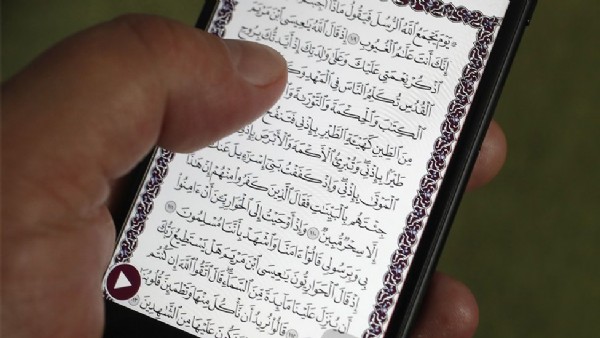 ۞ يَوْمَ يَجْمَعُ ٱللَّهُ ٱلرُّسُلَ فَيَقُولُ مَاذَآ
إِنَّكَ أَنتَ عَلَّٰمُ ٱلْغُيُوبِ ١٠٩ إِذْ قَالَ ٱللَّهُ يَٰعِيسَى ٱبْنَ مَرْيَمَ
ٱذْكُرْ نِعْمَتِى عَلَيْكَ وَعَلَىٰ وَٰلِدَتِكَ إِذْ أَيَّدتُّكَ بِرُوحِ
ٱلْقُدُسِ تُكَلِّمُ ٱلنَّاسَ فِى ٱلْمَهْدِ
ٱلْكِتَٰبَ وَٱلْحِكْمَةَ وَٱلتَّوْرَىٰةَ
مِنَ ٱلطِّينِ كَهَيْـَٔةِ ٱلطَّيْرِ بِإِذْنِى فَتَنفُخُ
طَيْرًۢا بِإِذْنِى وَتُبْرِئُ ٱلْأَكْمَهَ وَٱلْأَبْرَصَ
ٱلْمَوْتَىٰ بِإِذْنِى وَإِذْ كَفَفْتُ بَنِىٓ إِسْرَٰٓءِيلَ عَنكَ
جِئْتَهُم بِٱلْبَيِّنَٰتِ فَقَالَ ٱلَّذِينَ كَفَرُوا۟ مِنْهُمْ إِنْ هَٰذَآ
إِلَّا سِحْرٌ مُّبِينٌ ١١٠ وَإِذْ أَوْحَيْتُ إِلَى ٱلْحَوَارِيِّۦنَ أَنْ ءَامِنُوا۟
بِى وَبِرَسُولِى قَالُوٓا۟ ءَامَنَّا وَٱشْهَدْ بِأَنَّنَا مُسْلِمُونَ ١١١
إِذْ قَالَ ٱلْحَوَارِيُّونَ يَٰعِيسَى ٱبْنَ مَرْيَمَ هَلْ يَسْتَطِيعُ رَبُّكَ
أَن يُنَزِّلَ عَلَيْنَا مَآئِدَةً مِّنَ ٱلسَّمَآءِ قَالَ ٱتَّقُوا۟ ٱللَّهَ إِن كُنتُم
قَالُوا۟ نُرِيدُ أَن نَّأْكُلَ مِنْهَا وَتَطْمَئِنَّ قُلُوبُنَا
وَنَكُونَ عَلَيْهَا مِنَ ٱلشَّٰهِدِينَ